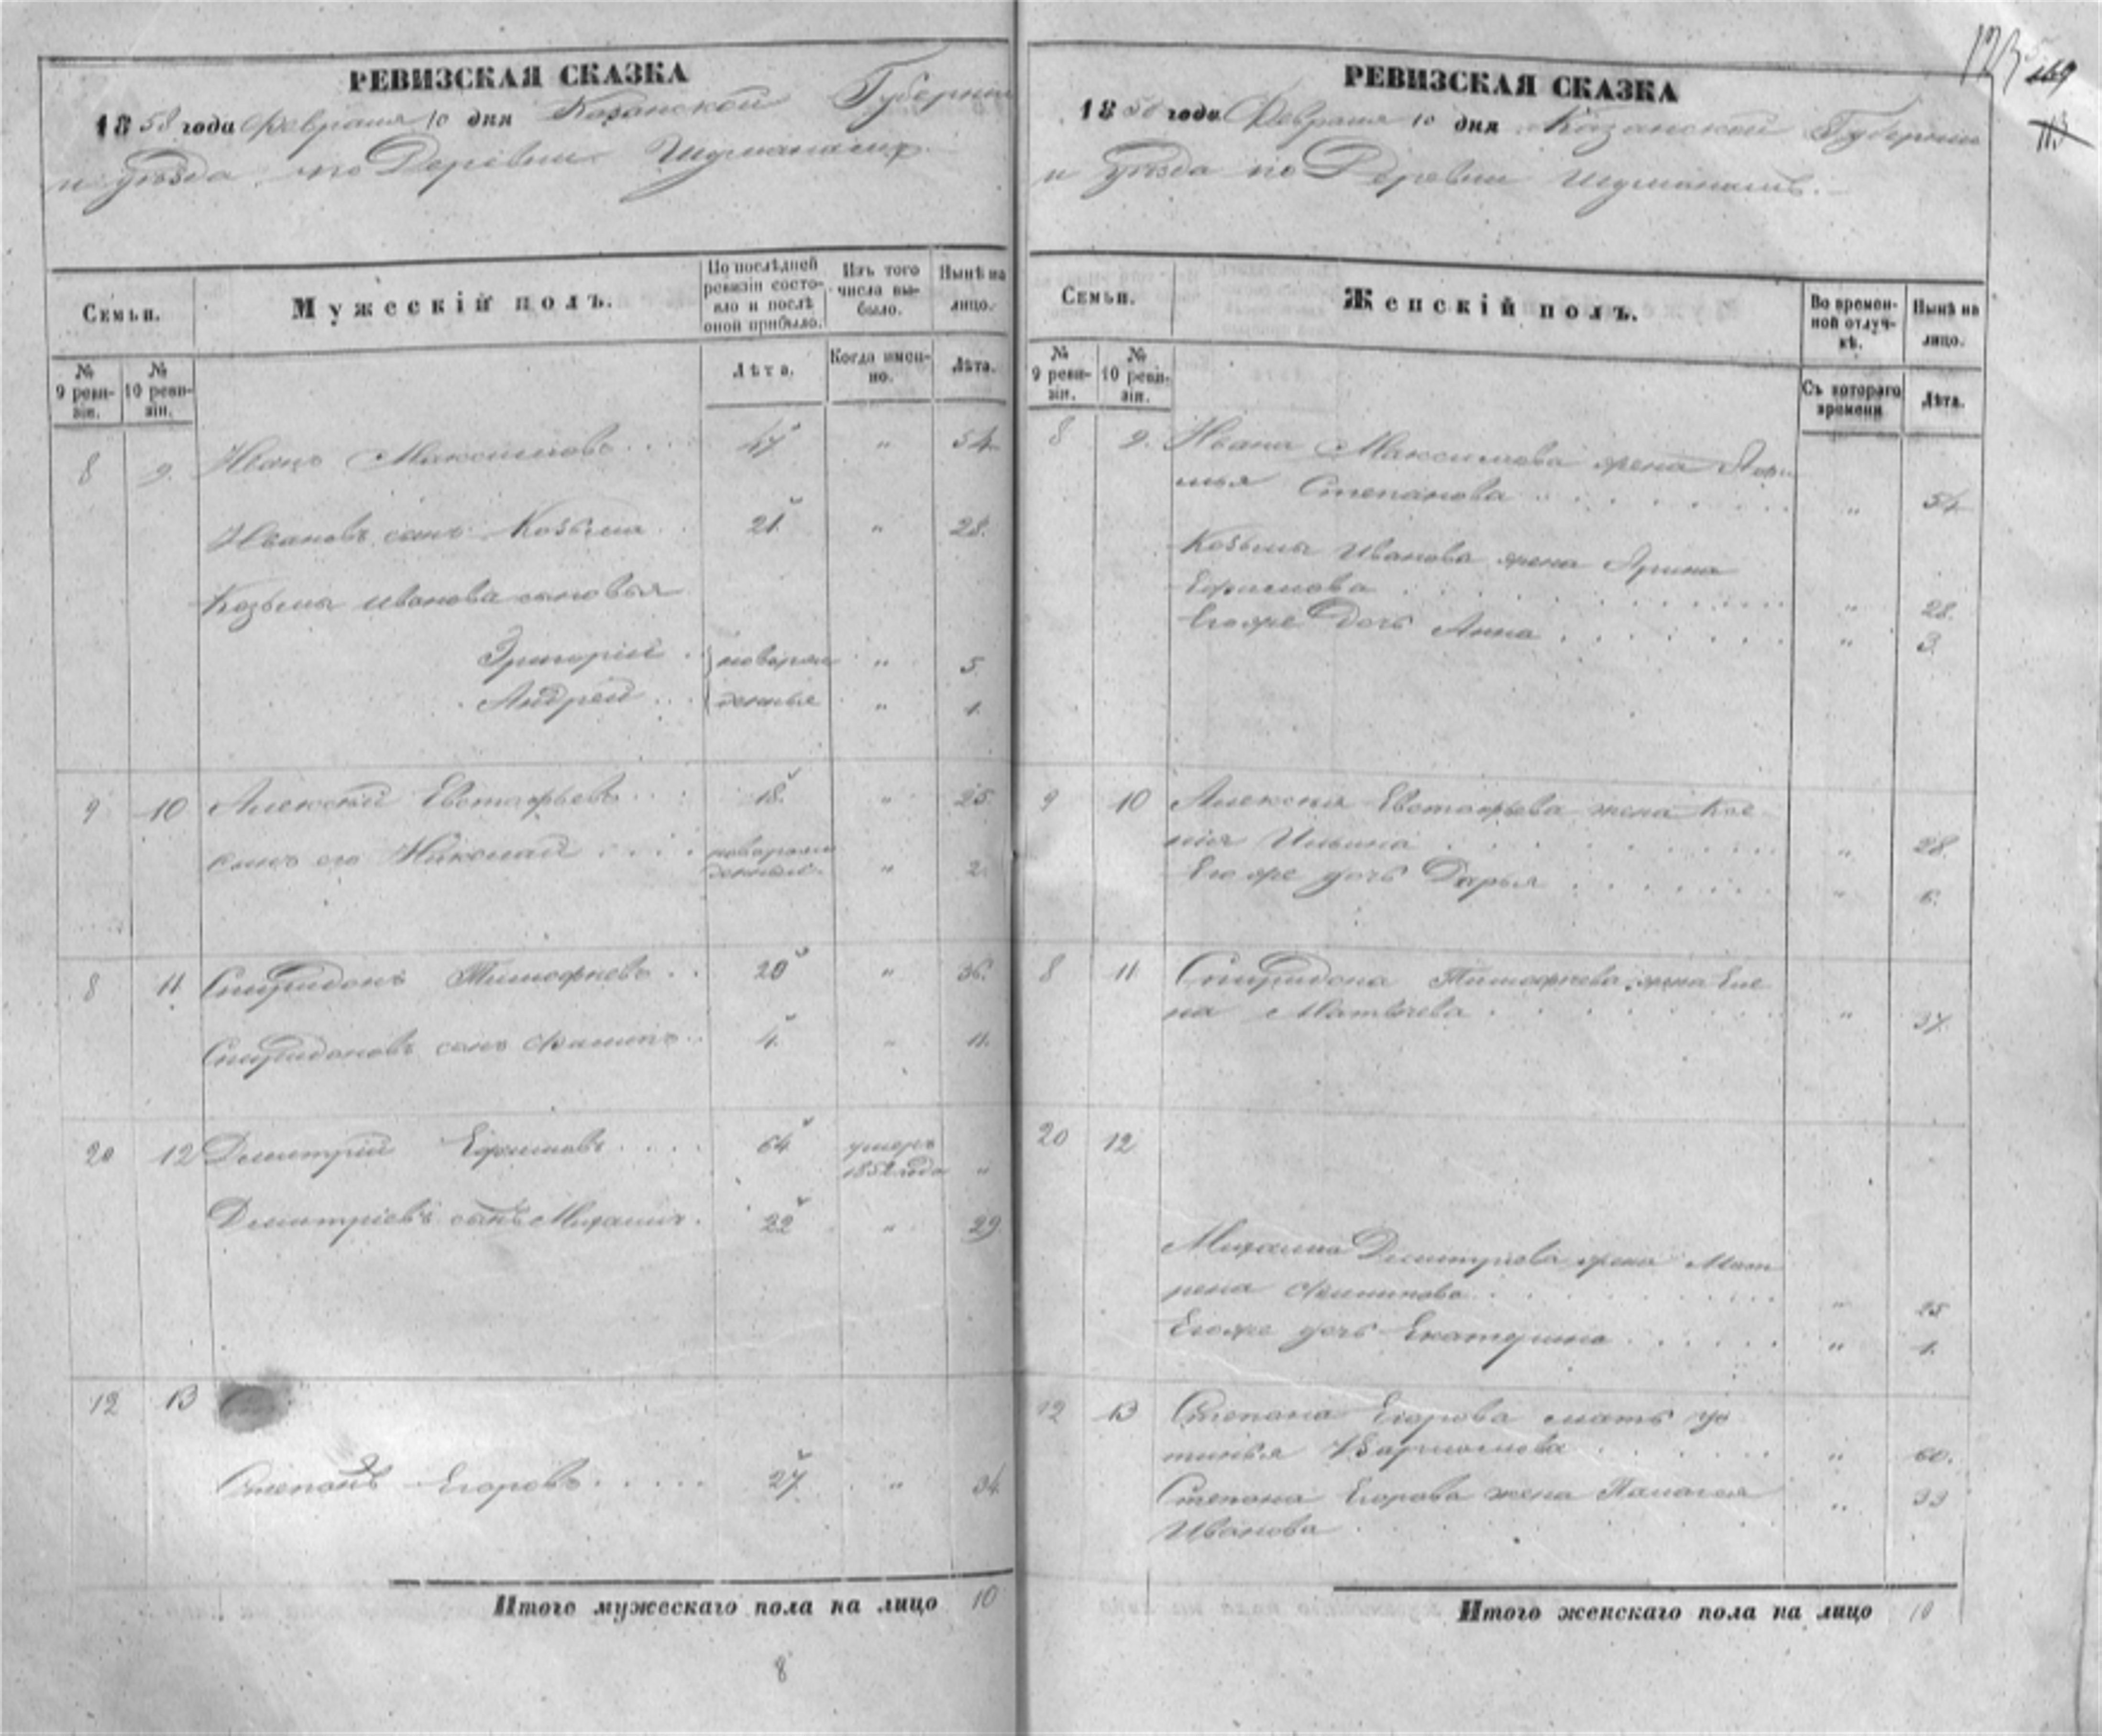 РЕВИЗСКАЯ СКАЗКА
1858 года Февраля 10 дня Казанской Губернии
и уѣзда по Деревни
Семьи.
Мужескій полъ.
По послѣдней ревизіи состояло и послѣ оной прибыло.
Изъ того числа выбыло.
Нынѣ на лицо.
№ 9 ревизіи.
№ 10 ревизіи.
Лѣта.
Когда именно.
Лѣта.
8 9. Иванъ Максимовъ 47 " 54
Ивановъ сынъ Козьма 21. " 28.
Козьмы Иванова сыновья
Григорій новорож " 5.
Андрей денные " 1.
9 10 Алексѣй Евстафьевъ 18. " 25
сынъ его Николай новорож
денный. " 2.
8 11 Спиридонъ Тимофеевъ 20 " 36.
Спиридоновъ сынъ Филипъ 4. " 11.
20 12 Дмитрій Ефимовъ 64 умеръ
1852 года "
Дмитріевъ сынъ Михаилъ 22 " 29
12 13
Степанъ Егоровъ 27 " 34
Итого мужескаго пола на лицо 10
8
123
169
113
РЕВИЗСКАЯ СКАЗКА
1858 года Февраля 10 дня Казанской Губернии
и уѣзда по Деревни
Семьи.
Женскій полъ.
Во временной отлучкѣ.
Нынѣ на лицо.
№ 9 ревизіи.
№ 10 ревизіи.
Съ котораго времени
Лѣта.
8 9. Ивана Максимова жена
Степанова " 54
Козьмы Иванова жена Арина
Ефимова " 28.
Его же дочь Анна " 3.
9 10 Алексѣя Евстафьева жена Ксе
нія Ильина " 28.
Его же дочь Дарья " 6.
8 11 Спиридона Тимофеева жена Еле
на Матвѣева " 37.
20 12
Михаила Дмитриева жена Мат
рена Филипова " 25
Его же дочь Екатерина " 1.
12 13 Степана Егорова мать Ус
тинья " 60.
Степана Егорова жена Палагея " 33
Иванова
Итого женскаго пола на лицо 10